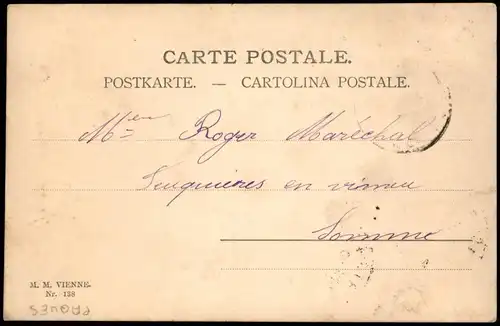 CARTE POSTALE.
POSTKARTE. — CARTOLINA POSTALE.
Roger Maréchal
en vimeu
Somme
M. M. VIENNE.
Nr. 138